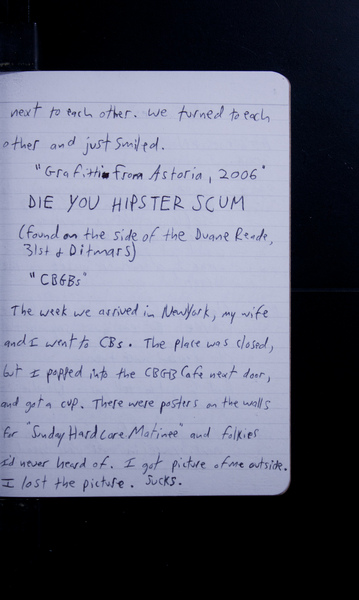 next to each other. We turned to each
other and just smiled.
"Grafitti From Astoria, 2006"
DIE YOU HIPSTER SCUM
(found on the side of the Duane Reade,
31st & Ditmars)
"CBGBs"
The week we arrived in New York, my wife
and I went to CBs. The place was closed,
but I popped into the CBGB Cafe next door,
and got a cup. There were posters on the walls
for "Sunday Hardcore Matinee" and folkies
I'd never heard of. I got picture of me outside.
I lost the picture. Sucks.